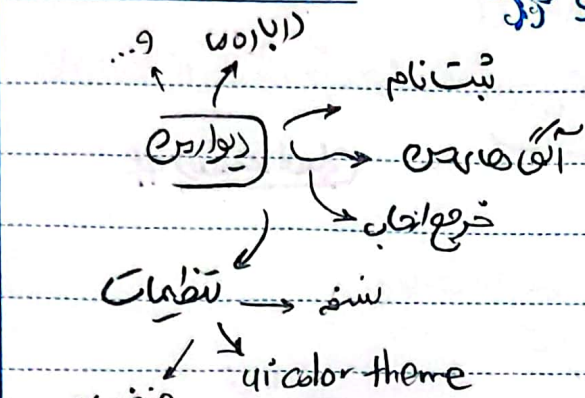 درباره ما
و...
ثبت نام
دیوار من
آگهی های من
خروج از حساب
تنظیمات
نسخه
ui color theme